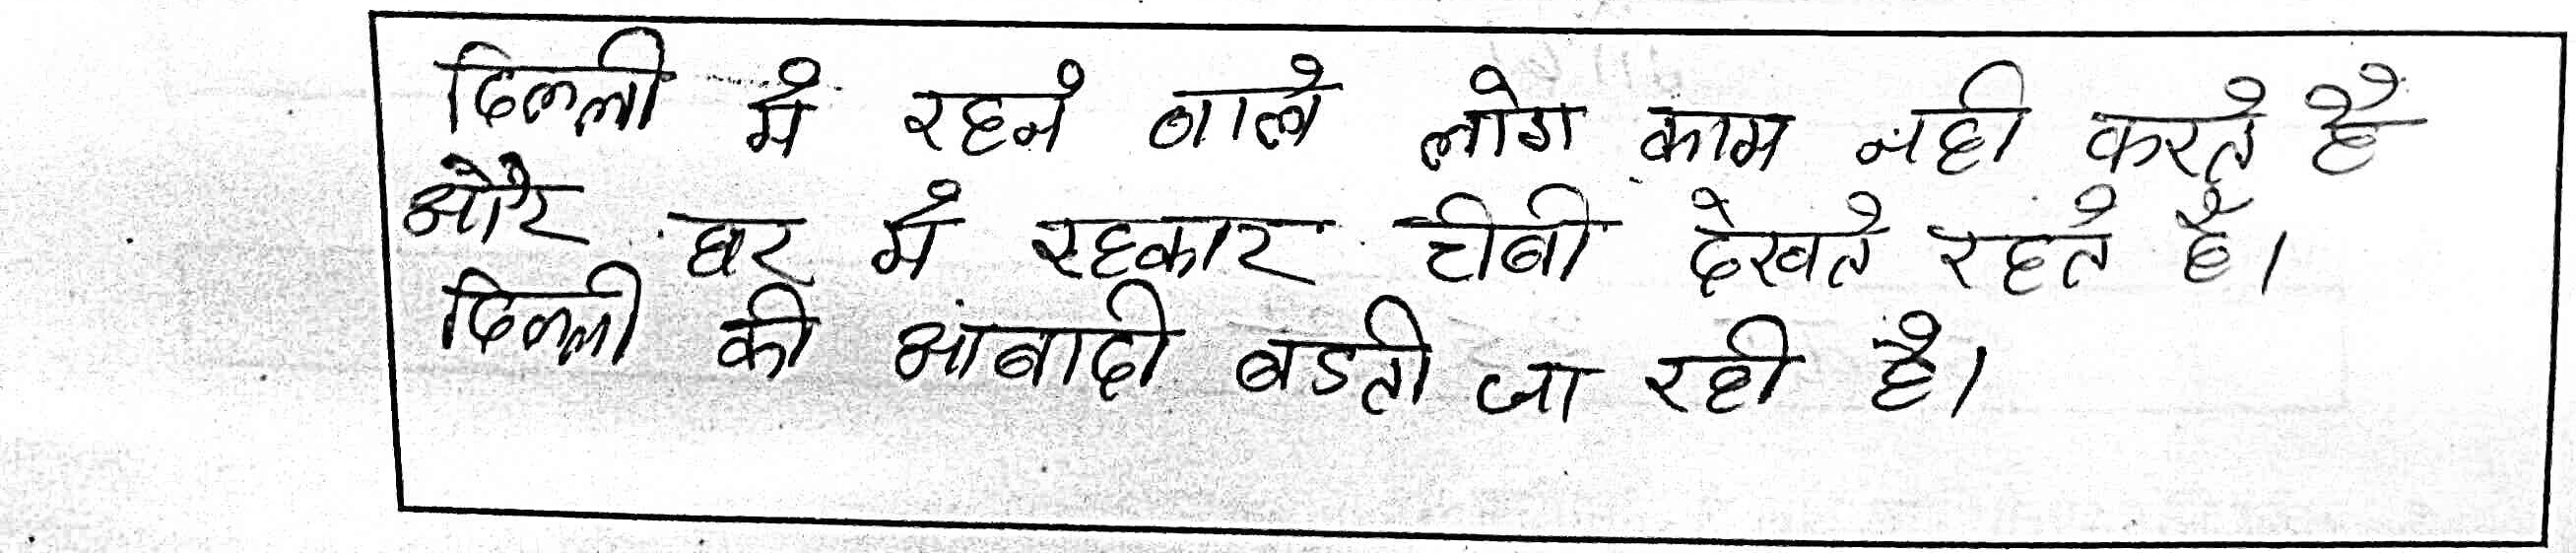 दिल्ली में रहने बाले लोग काम नही करते है
और घर में रहकार टीबी देखते रहते है।
दिल्ली की आबादी बडती जा रही है।